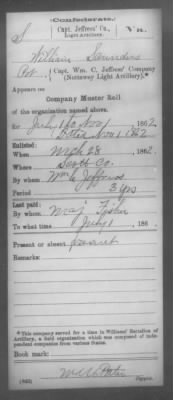 (Confederate.)
S Capt. Jeffress' Co., Va.
Light Artillery.
William Saunders
Pvt, Capt. Wm. C. Jeffress' Company
(Nottoway Light Artillery).*
Appears on
Company Muster Roll
of the organization named above,
for July 1 to Nov 1, 1862.
Nov 1 1862
Enlisted:
When Mch 28, 1862.
Where Scott Co.
By whom Wm C Jeffress
Period 3 yrs
Last paid:
By whom Maj
To what time July 1, 186 .
Present or absent Present
Remarks:
*This company served for a time in Williams' Battalion of
Artillery, a field organization which was composed of in-
dependent companies from various States.
Book mark:
(642)
Copyist.